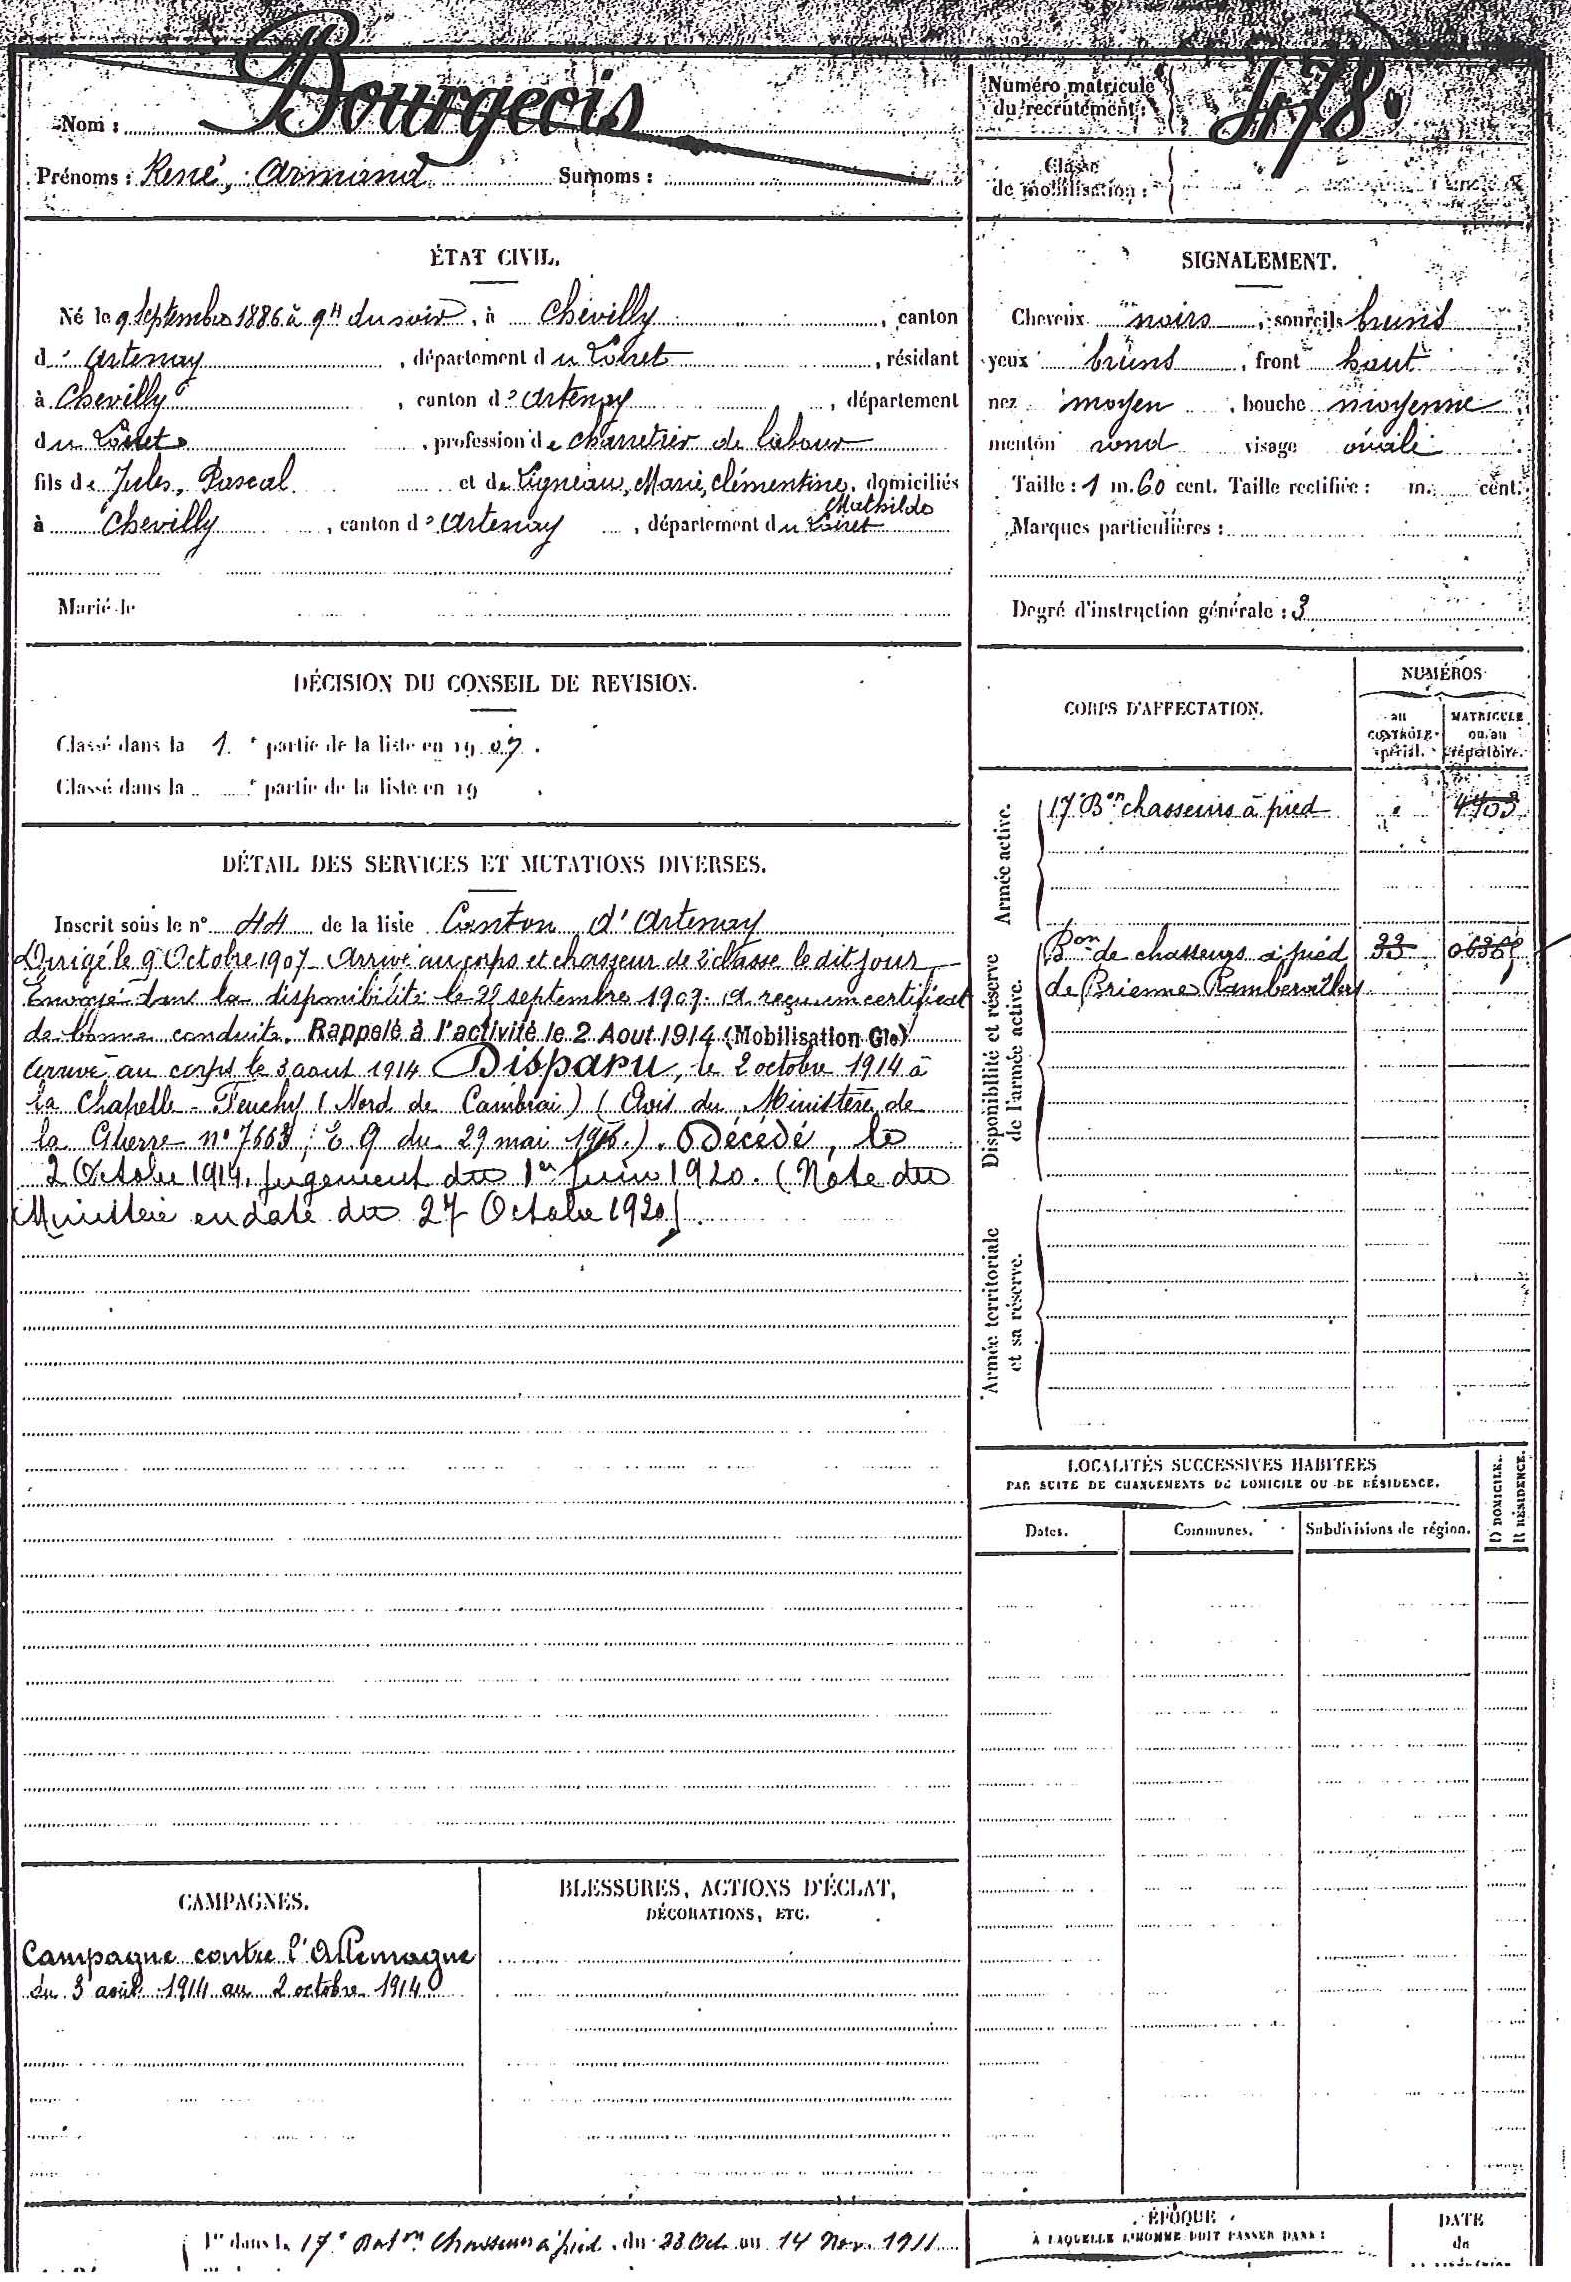 Nom : Bourgeois
Prénoms : René, Armand Surnoms :
Numéro matricule
du recrutement : 478.
Classe
de mobilisation :
ÉTAT CIVIL.
Né le 9 Septembre 1886 à 9H du soir, à Chevilly, canton
d'Artenay, département du Loiret, résidant
à Chevilly, canton d'Artenay, département
du Loiret, profession de charretier de labour
fils de Jules, Pascal et de Vigneau, Marie, Clémentine, domiciliés
Mathilde
à Chevilly, canton d'Artenay, département du Loiret
Marié le
SIGNALEMENT.
Cheveux noirs, sourcils bruns
yeux bruns, front haut
nez moyen, bouche moyenne
menton rond visage ovale
Taille : 1 m. 60 cent. Taille rectifiée : m. cent.
Marques particulières :
Degré d'instruction générale : 3
DÉCISION DU CONSEIL DE REVISION.
Classé dans la 1e partie de la liste en 1907.
Classé dans la e partie de la liste en 19 .
DÉTAIL DES SERVICES ET MUTATIONS DIVERSES.
Inscrit sous le n° 44 de la liste Canton d'Artenay
Dirigé le 9 Octobre 1907 Arrivé au corps et chasseur de 2e classe le dit jour
Envoyé dans la disponibilité le septembre 1909. A reçu un certificat
de bonne conduite. Rappelé à l'activité le 2 Aout 1914 (Mobilisation Gle)
Arrivé au corps le 3 aout 1914 Disparu, le 2 octobre 1914 à
la Chapelle-Feuchy (Nord de Cambrai) (Avis du Ministère de
la Guerre n° 7663, E 9 du 29 mai ). Décédé, le
2 Octobre 1914, jugement du 1er Juin 1920. (Note du
Ministère en date du 27 Octobre 1920).
CORPS D'AFFECTATION.
NUMÉROS
au
CONTRÔLE
spécial.
MATRICULE
ou au
répertoire.
Armée active.
17e Bon chasseurs à pied 4703
Disponibilité et réserve
de l'armée active.
Bon de chasseurs à pied 33
de Brienne Rambervillers
Armée territoriale
et sa réserve.
LOCALITÉS SUCCESSIVES HABITÉES
PAR SUITE DE CHANGEMENTS DE DOMICILE OU DE RÉSIDENCE.
Dates. Communes. Subdivisions de région.
D DOMICILE.
R RÉSIDENCE.
CAMPAGNES.
Campagne contre l'Allemagne
du 3 août 1914 au 2 octobre 1914
BLESSURES, ACTIONS D'ÉCLAT,
DÉCORATIONS, ETC.
1re dans le 17e Baton Chasseurs à pied, du 23 Oct au 14 Nov. 1911
ÉPOQUE
À LAQUELLE L'HOMME DOIT PASSER DANS :
DATE
de